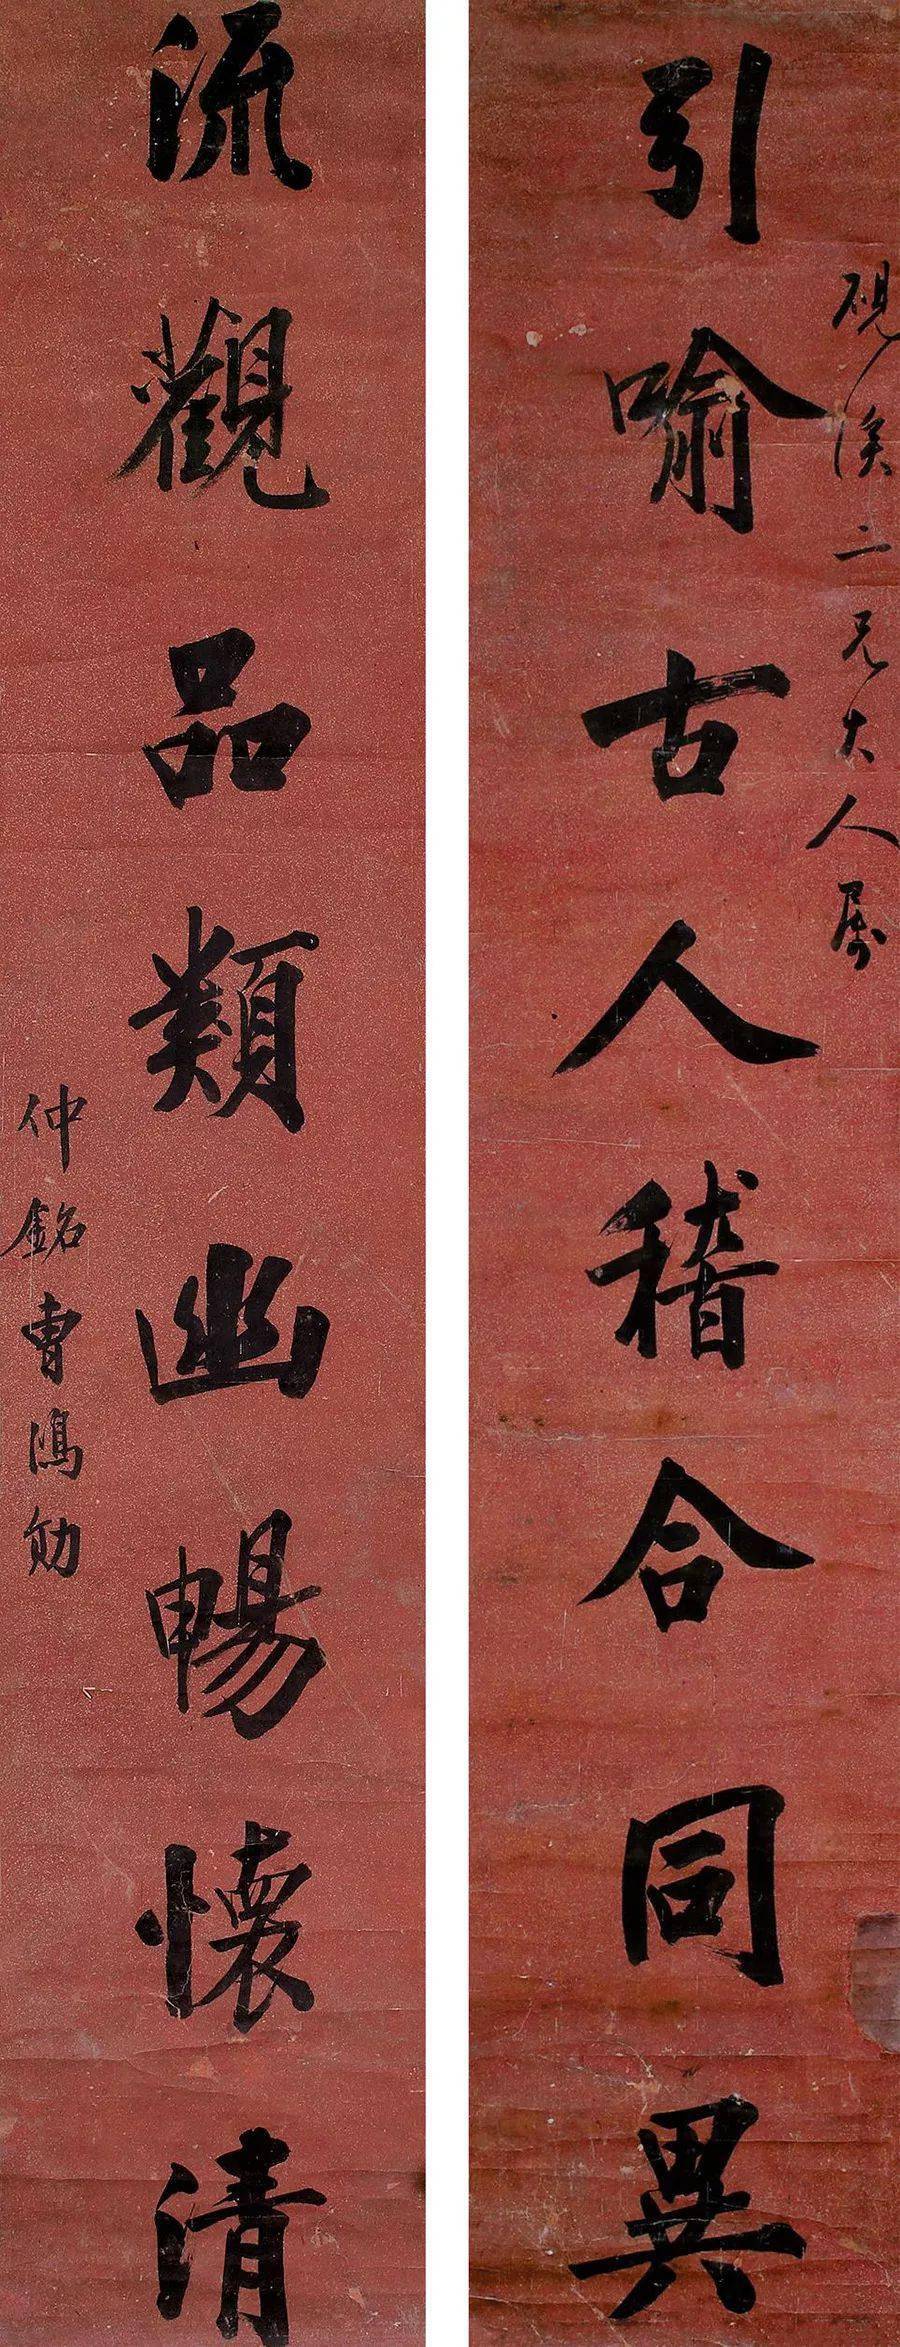 硯溪二兄大人屬
引喻古人稽合同異
流觀品類幽暢懷清
仲銘曹鴻勛